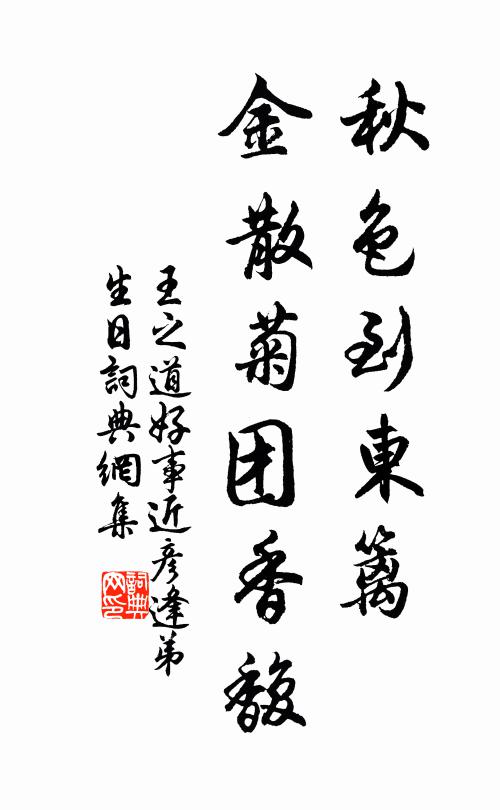 秋色到東篱
金散菊团香馥
王之道好事近彦逢弟
生日詞典網集
詞典网印